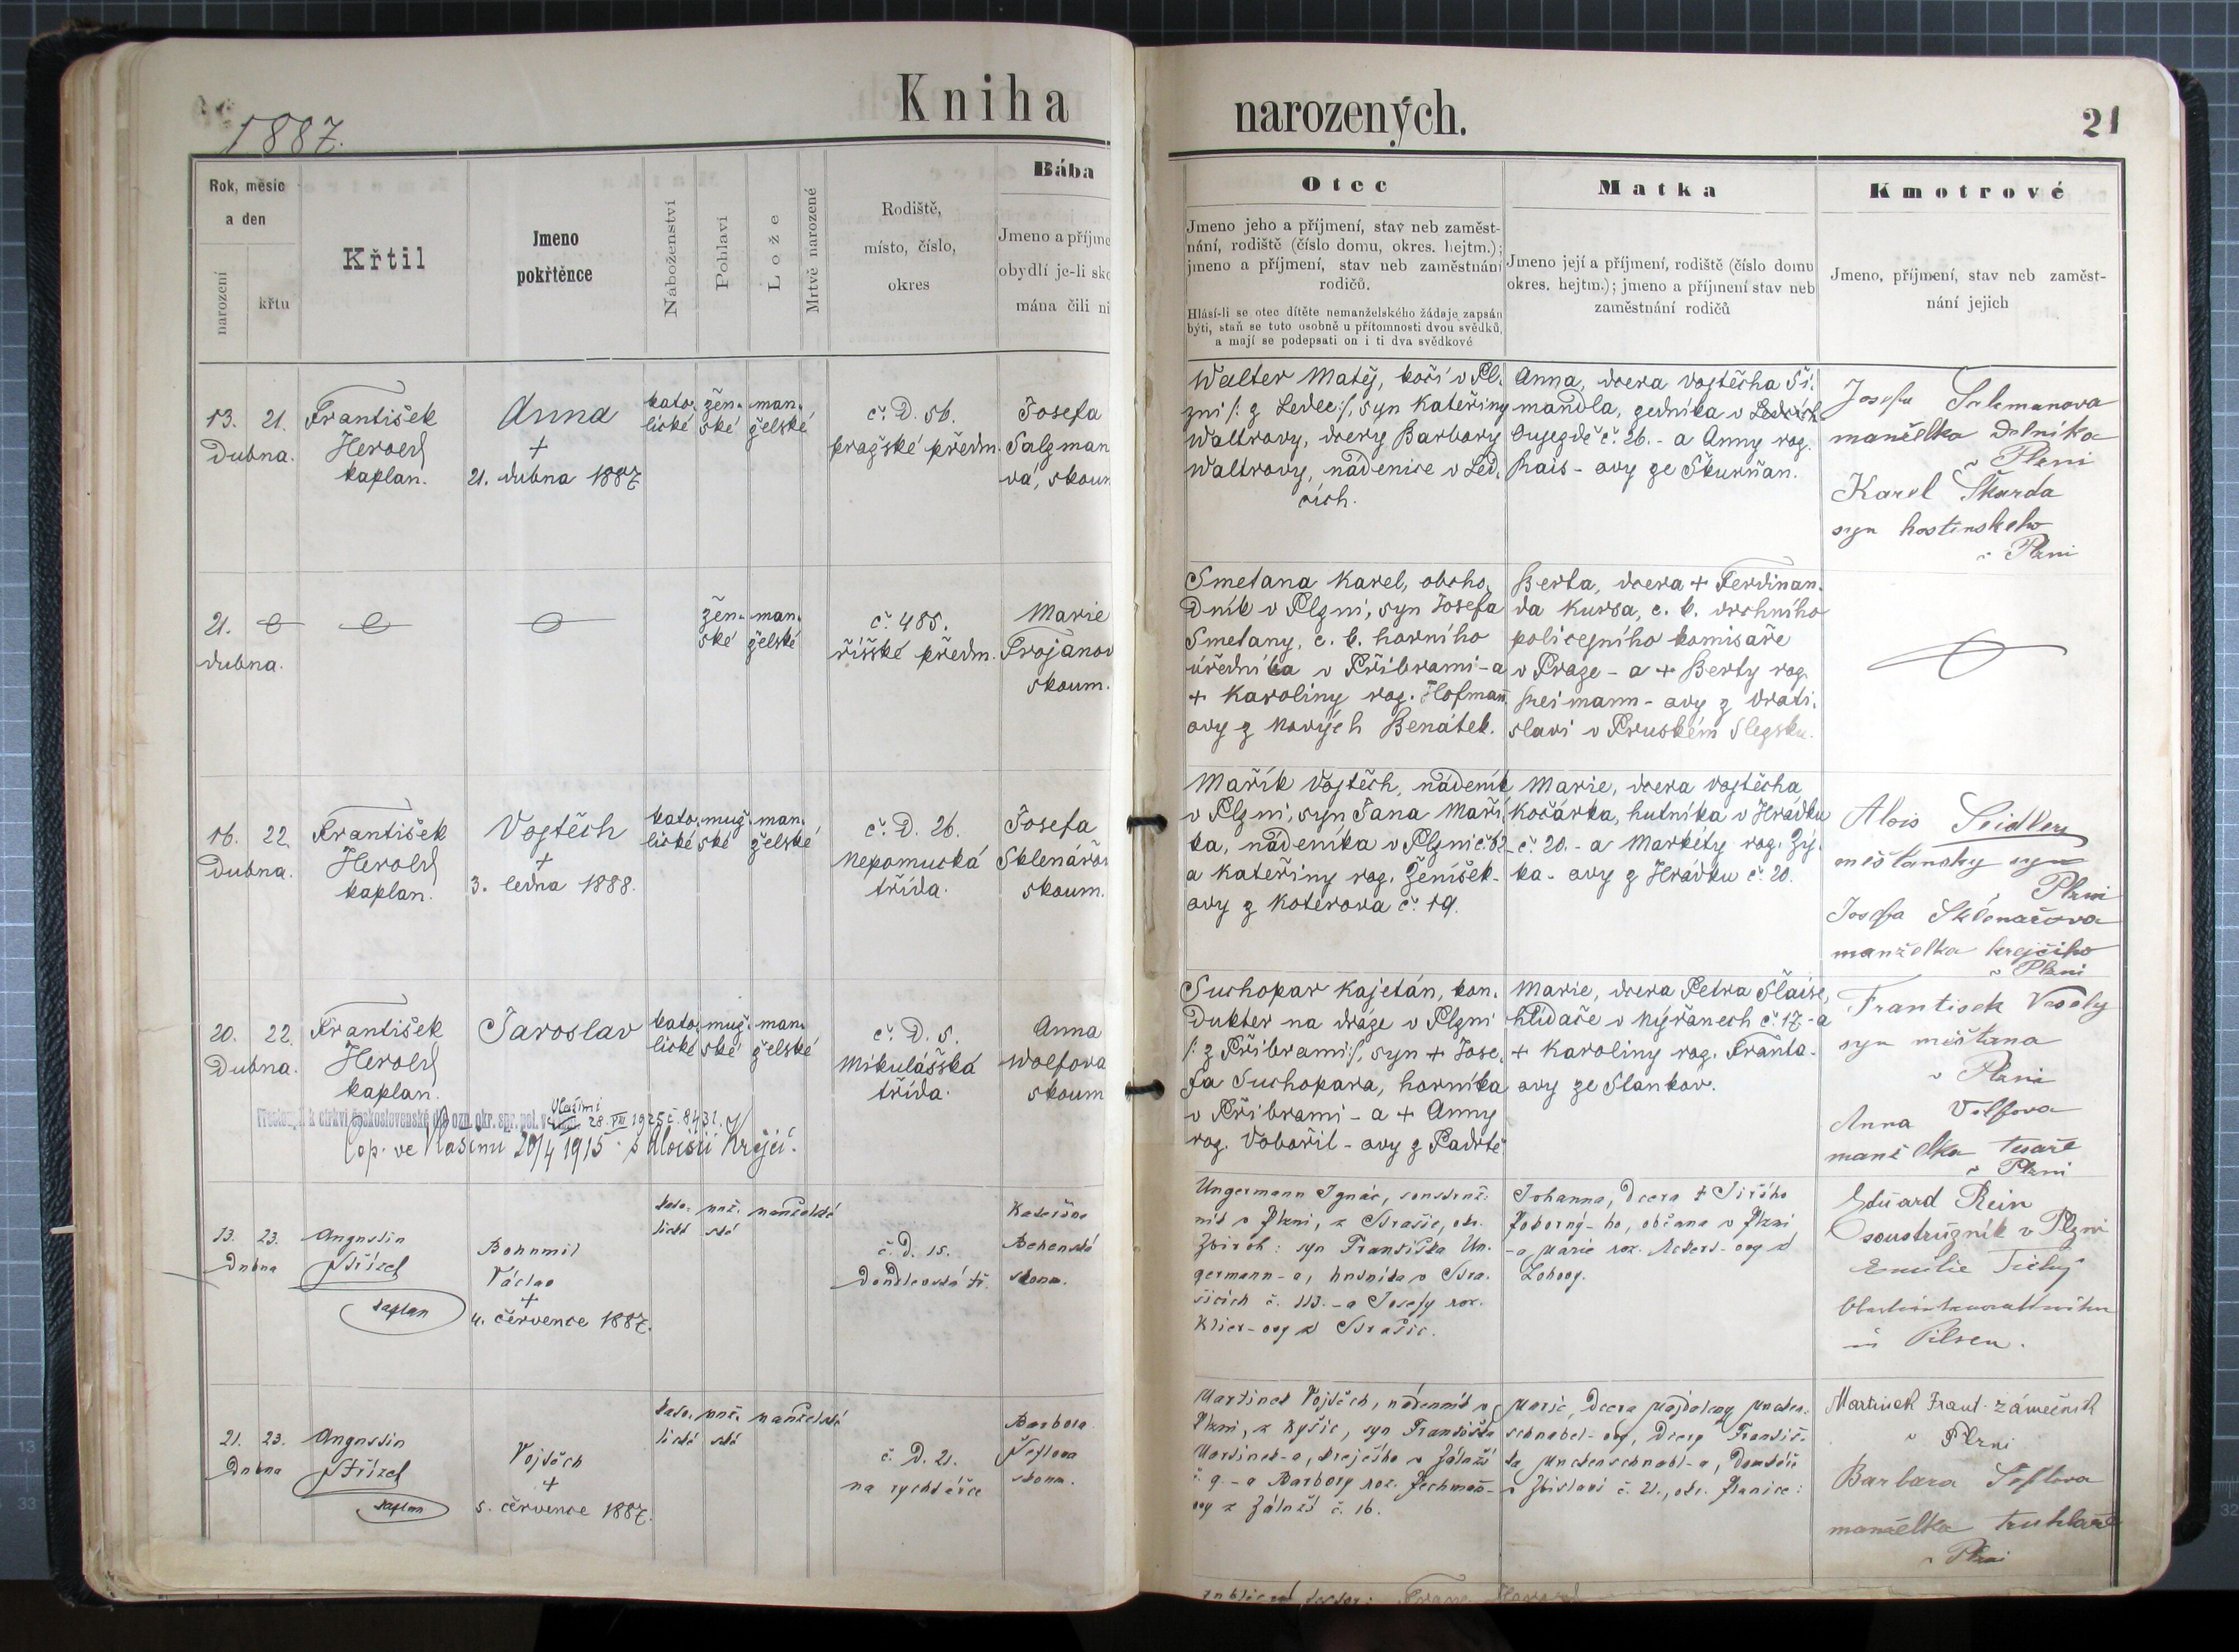 Kniha
narozených.
1887.
21
Rok, měsíc
a den
narození
křtu
Křtil
Jmeno
pokřtěnce
Náboženství
Pohlaví
Lože
Mrtvě narozené
Rodiště,
místo, číslo,
okres
Bába
Jmeno a příjme
obydlí je-li sko
mána čili ni
Otec
Jmeno jeho a příjmení, stav neb zaměst-
nání, rodiště (číslo domu, okres. hejtm.);
jmeno a příjmení, stav neb zaměstnání
rodičů.
Hlásí-li se otec dítěte nemanželského žádaje zapsán
býti, staň se toto osobně u přítomnosti dvou svědků,
a mají se podepsati on i ti dva svědkové
Matka
Jmeno její a příjmení, rodiště (číslo domu
okres. hejtm.); jmeno a příjmení stav neb
zaměstnání rodičů
Kmotrové
Jmeno, příjmení, stav neb zaměst-
nání jejich
13. 21.
Dubna.
František
Herold
kaplan.
Anna
+
21. dubna 1887
kato-
lické
žen-
ské
man-
želské
č. D. 56.
pražské předm.
Josefa
Salzman
vá, skoum
Walter Matěj, kočí v Pl-
zni /: z Ledec :/, syn Kateřiny
Waltrovy, dcery Barbory
Waltrovy, nádenice v Led-
cích.
Anna, dcera Vojtěcha Ši-
mandla, zedníka v Ledcích
Oujezdě č. 26. - a Anny roz.
Hais - ovy ze Škurňan.
Josefa Salzmanova
manželka dělníka
v Plzni
Karel Škarda
syn hostinskeho
v Plzni
21.
dubna.
žen-
ské
man-
želské
č. 485.
říšské předm.
Marie
Trojanov
skoum.
Smetana Karel, obcho-
dník v Plzni, syn Josefa
Smetany, c. k. horního
úředníka v Příbrami - a
+ Karoliny roz. Hofmann
ovy z Nových Benátek.
Berta, dcera + Ferdinan-
da Kursa, c. k. vrchního
policejního komisaře
v Praze - a + Berty roz.
Heimann - ovy z Vrati-
slavi v Pruském Slezsku.
16. 22.
Dubna.
František
Herold
kaplan.
Vojtěch
+
3. ledna 1888.
kato-
lické
muž-
ské
man-
želské
č. D. 26.
Nepomucká
třída.
Josefa
Sklenářov
skoum.
Mařík Vojtěch, nádeník
v Plzni, syn Jana Maří-
ka, nádeníka v Plzni č. 62
a Kateřiny roz. Ženíšek-
ovy z Koterova č. 19.
Marie, dcera Vojtěcha
Kočárka, hutníka v Hrádku
č. 20. - a Markéty roz. Zý-
ka - ovy z Hrádku č. 20.
Alois Seidler
měšťansky syn
Plzni
Josefa Sklenařova
manželka krejčiho
v Plzni
20. 22.
Dubna.
František
Herold
kaplan.
Jaroslav
kato-
lické
muž-
ské
man-
želské
č. D. 5.
Mikulášská
třída.
Anna
Wolfova
skoum
Suchopar Kajetán, kon-
dukter na dráze v Plzni
/: z Příbrami :/, syn + Jose-
fa Suchopara, horníka
v Příbrami - a + Anny
roz. Vobořil - ovy z Padrtě
Marie, dcera Petra Šlaise,
hlídače v Nýřanech č. 17 - a
+ Karoliny roz. Franta-
ovy ze Stankov.
František Veselý
syn měštana
v Plzni
Anna Volfova
manželka tesaře
v Plzni
Vlašimi
k církvi československé dle ozn. okr. spr. pol. v 28. VII 1925 č. 8431.
Cop. ve Vlašimi 20/4 1915 s Aloisií Krejčí.
13. 23.
Dubna
Augustin
Střízek
kaplan
Bohumil
Václav
+
4. července 1887.
kato-
lické
muž-
ské
manželské
č. D. 15.
Doudlevská tř.
Kateřina
skoum.
Ungermann Ignác, soustruž-
ník v Plzni, z Strašic, okr.
Zbiroh: syn Františka Un-
germann-a, hutníka v Stra-
šicích č. 113. - a Josefy roz.
Klier-ovy z Strašic.
Johanna, dcera + Jiřího
Poborný-ho, občana v Plzni
- a Marie roz.
Eduard Rein
soustružník v Plzni
Emilie Tichy
in Pilsen.
21. 23.
Dubna
Augustin
Střízek
kaplan
Vojtěch
+
5. července 1887.
kato-
lické
muž-
ské
manželské
č. D. 21.
na rychtářce
Barbora
Šeflova
skoum.
Martinek Vojtěch, nádeník v
Plzni, z Kyšic, syn Františka
Martinek-a, krejčího v Zálužž
č. 9. - a Barbory roz. Pechman-
ovy z Zálužž č. 16.
Marie, dcera Majdaleny
schnabel-ovy, dcery Františ-
v Zbislavi č. 21., okr. Planice:
Martinek Frant. zámečník
v Plzni
Barbara Šeflova
manželka truhlaře
v Plzni